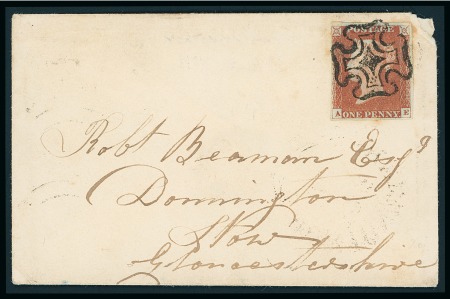 POSTAGE
A ONE PENNY E
Robt Beaman Esqr
Donnington
Stow
Gloucestershire